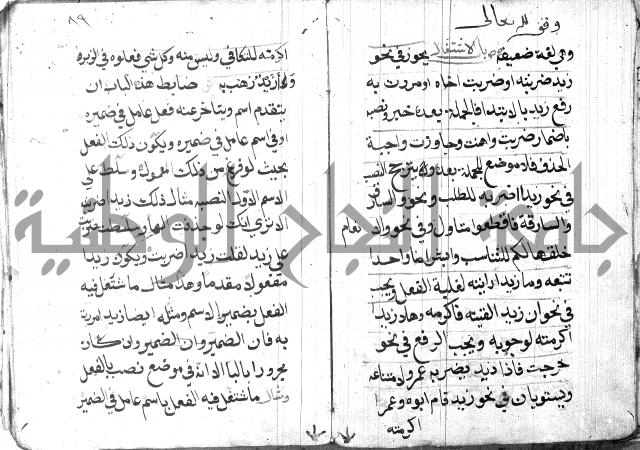 وقف لله تعالى
وهي لغة ضعيفة ص باب الاشتغال يجوز في نحو
زيد ضربته او ضربت اخاه او مررت به
رفع زيد بالابتداء فالجملة بعده خبر ونصبه
باضمار ضربت واهنت وجاوزت واجبة
الحذف فلا موضع للجملة بعده ويترجح النصب
في نحو زيدا اضربه للطلب ونحو والسارق
والسارقة فاقطعوا متاول وفي نحو والانعام
خلقها لكم للتناسب وابشرا منا واحدا
نتبعه وما زيدا رايته لغلبة الفعل ويجب
في نحو ان زيدا لقيته فاكرمه وهلا زيدا
اكرمته لوجوبه ويجب الرفع في نحو
خرجت فاذا زيد يضربه عمرو لامتناعه
ويستويان في نحو زيد قام ابوه وعمرا
اكرمته
٨٩
اكرمته للتكافي وليس منه وكل شي فعلوه في الزبر
وازيد ذهب به ضابط هذا الباب ان
يتقدم اسم ويتاخر عنه فعل عامل في ضميره
او في اسم عامل في ضميره ويكون ذلك الفعل
بحيث لو فرغ من ذلك المعمول وسلط على
الاسم الاول لنصبه مثال ذلك زيدا ضربته
الا ترى انك لو حذفت الها وسلطت ضربت
على زيد لقلت زيدا ضربت ويكون زيدا
مفعولا مقدما وهذا مثال ما اشتغل فيه
الفعل بضمير الاسم ومثله ايضا زيد مررت
به فان الضمير وان كان
مجرورا بالبا الا انه في موضع نصب بالفعل
ومثال ما اشتغل فيه الفعل باسم عامل في الضمير
جامعة النجاح الوطنية